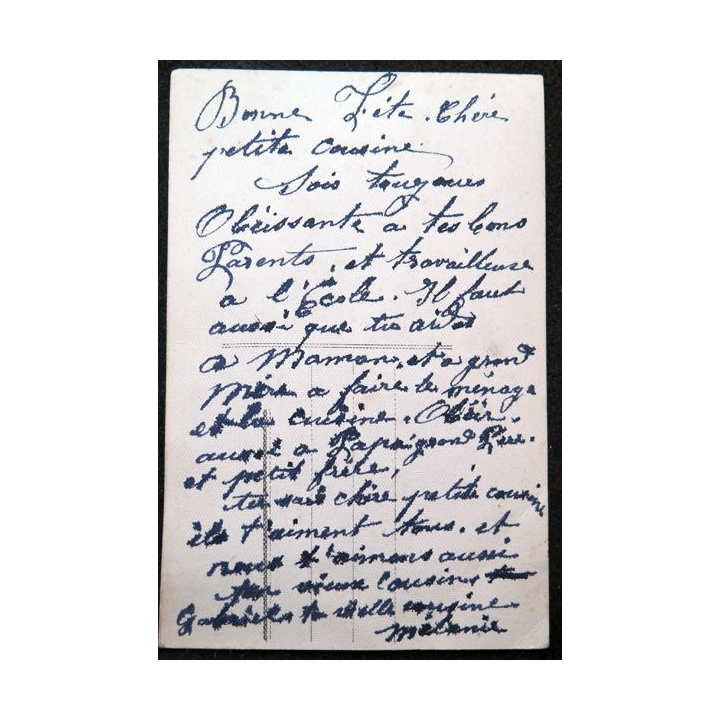 Bonne Fête. Chére
petite cousine.
Sois toujours
Obéissante a tes bons
Parents, et travailleuse
a l'École. Il faut
aussi que tu aides
a Maman, et a grand
Mère a faire le ménage
et la cuisine. Obéir,
aussi a Papa, grand Père.
et petit frère,
tu sais chère petite cousine
ils t'aiment tous. et
nous t'aimons aussi
ton vieux Cousin,
Gabriel, ta vielle cousine
Mélanie